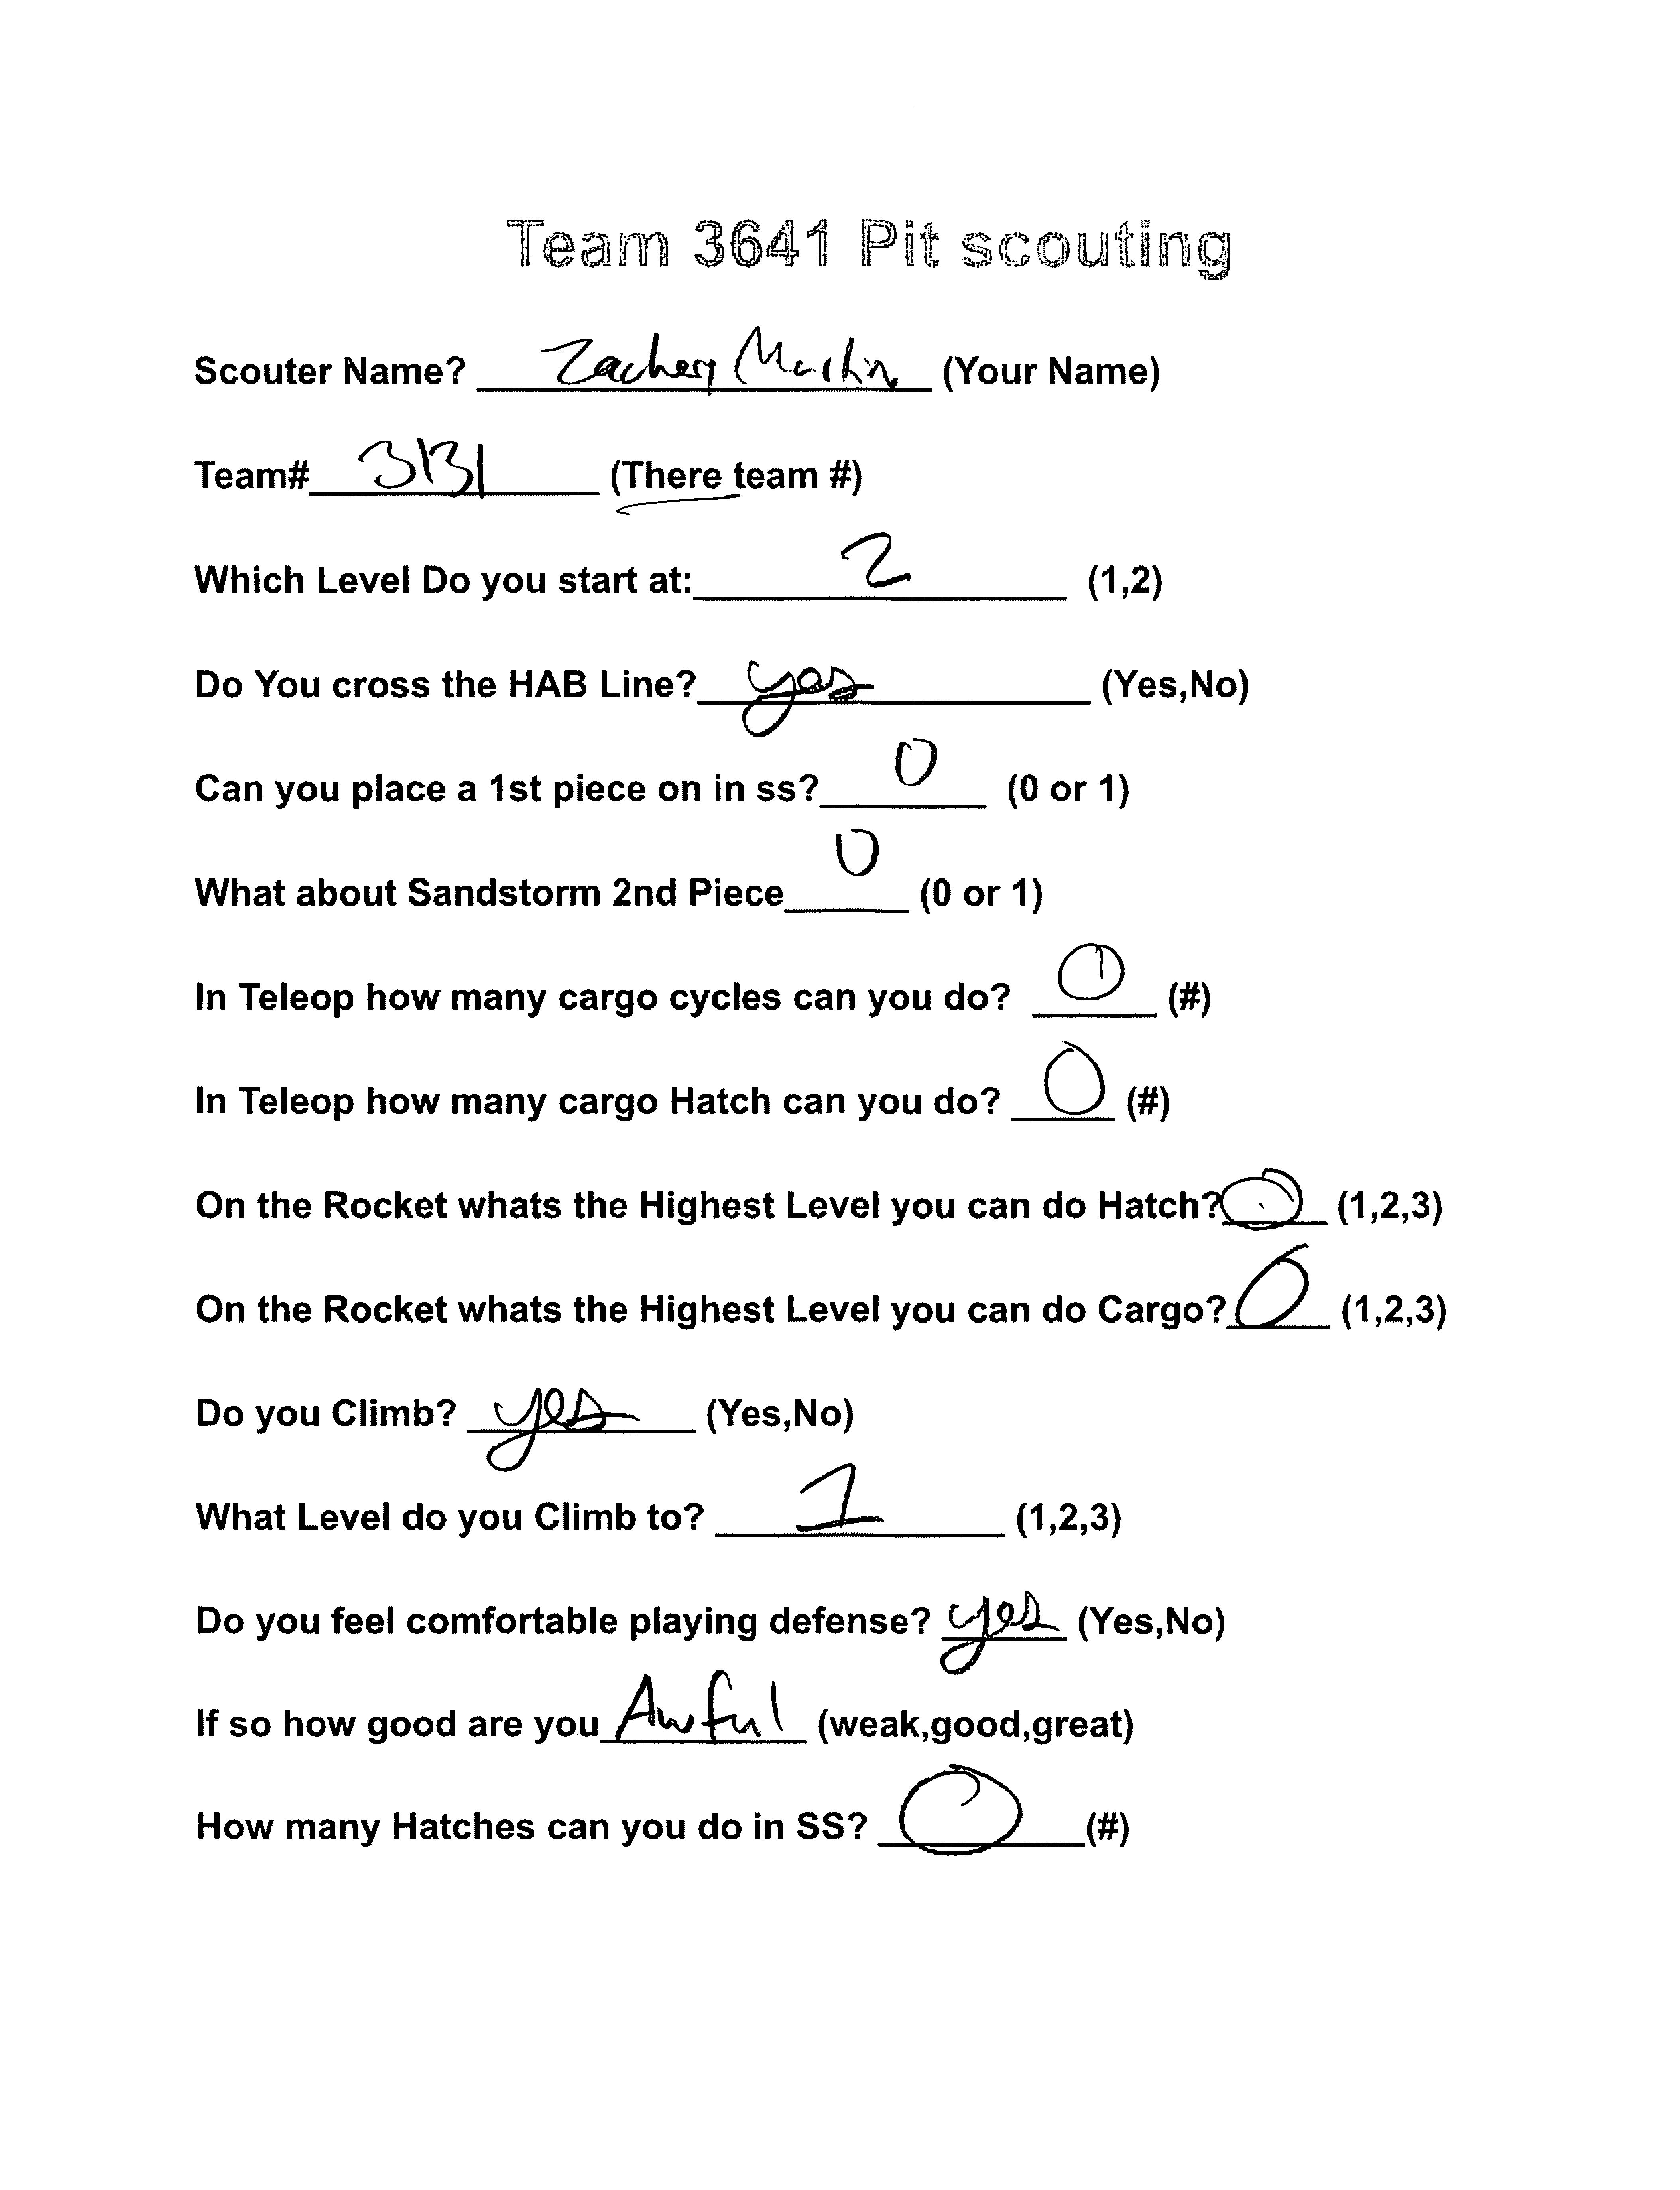 Team 3641 Pit scouting
Scouter Name? Zachery Martin (Your Name)
Team# 3131 (There team #)
Which Level Do you start at: 2 (1,2)
Do You cross the HAB Line? yes (Yes,No)
Can you place a 1st piece on in ss? 0 (0 or 1)
What about Sandstorm 2nd Piece 0 (0 or 1)
In Teleop how many cargo cycles can you do? 0 (#)
In Teleop how many cargo Hatch can you do? 0 (#)
On the Rocket whats the Highest Level you can do Hatch? 0 (1,2,3)
On the Rocket whats the Highest Level you can do Cargo? 0 (1,2,3)
Do you Climb? yes (Yes,No)
What Level do you Climb to? 1 (1,2,3)
Do you feel comfortable playing defense? yes (Yes,No)
If so how good are you Awful (weak,good,great)
How many Hatches can you do in SS? 0 (#)